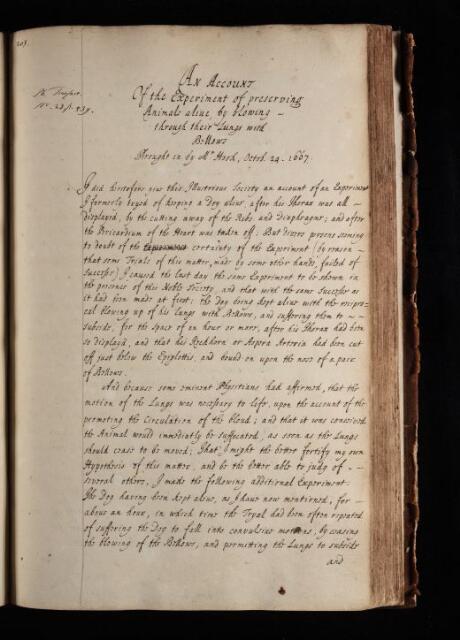 209.
Ph. Transact.
No. 28. p. 539.
An Account
Of the Experiment of preserving
Animals alive by blowing –
through their Lungs with
Bellows
Brought in by Mr. Hook, Octob. 24. 1667.
I did heretofore give this Illustrious Society an account of an Experiment
I formerly tryed of keeping a Dog alive, after his Thorax was all –
displayed, by the cutting away of the Ribs and Diaphragme; and after
the Pericardium of the Heart was taken off. But divers persons seeming
to doubt of the certainty of the Experiment (by reason –
that some Trials of this matter, made by some other hands, failed of
Success) I caused the last day the same Experiment to be shown in
the presence of this Noble Society, and that with the same Success as
it had been made at first; the Dog being kept alive with the recipro-
cal blowing up of his Lungs with Bellows, and suffering them to ~ ~
subside, for the space of an hour or more, after his Thorax had been
so displayd, and that his Aspera Arteria had been cut
off just below the Epiglottis, and bound on upon the nose of a pair
of Bellows.
And because some eminent Physitians had affirmed, that the
motion of the Lungs was necessary to Life, upon the account of the
promoting the Circulation of the blood; and that it was conceived
the Animal would immediatly be suffocated, as soon as the Lungs
should cease to be moved; That I might the better fortify my own
Hypothesis of this matter, and be the better able to judg of . –
several others, I made the following additional Experiment.
The Dog having been kept alive, as I have now mentioned, for –
about an hour, in which time the Tryal had been often repeated
of suffering the Dog to fall into convulsive motions, by ceasing
the blowing of the Bellows, and permitting the Lungs to subside
and